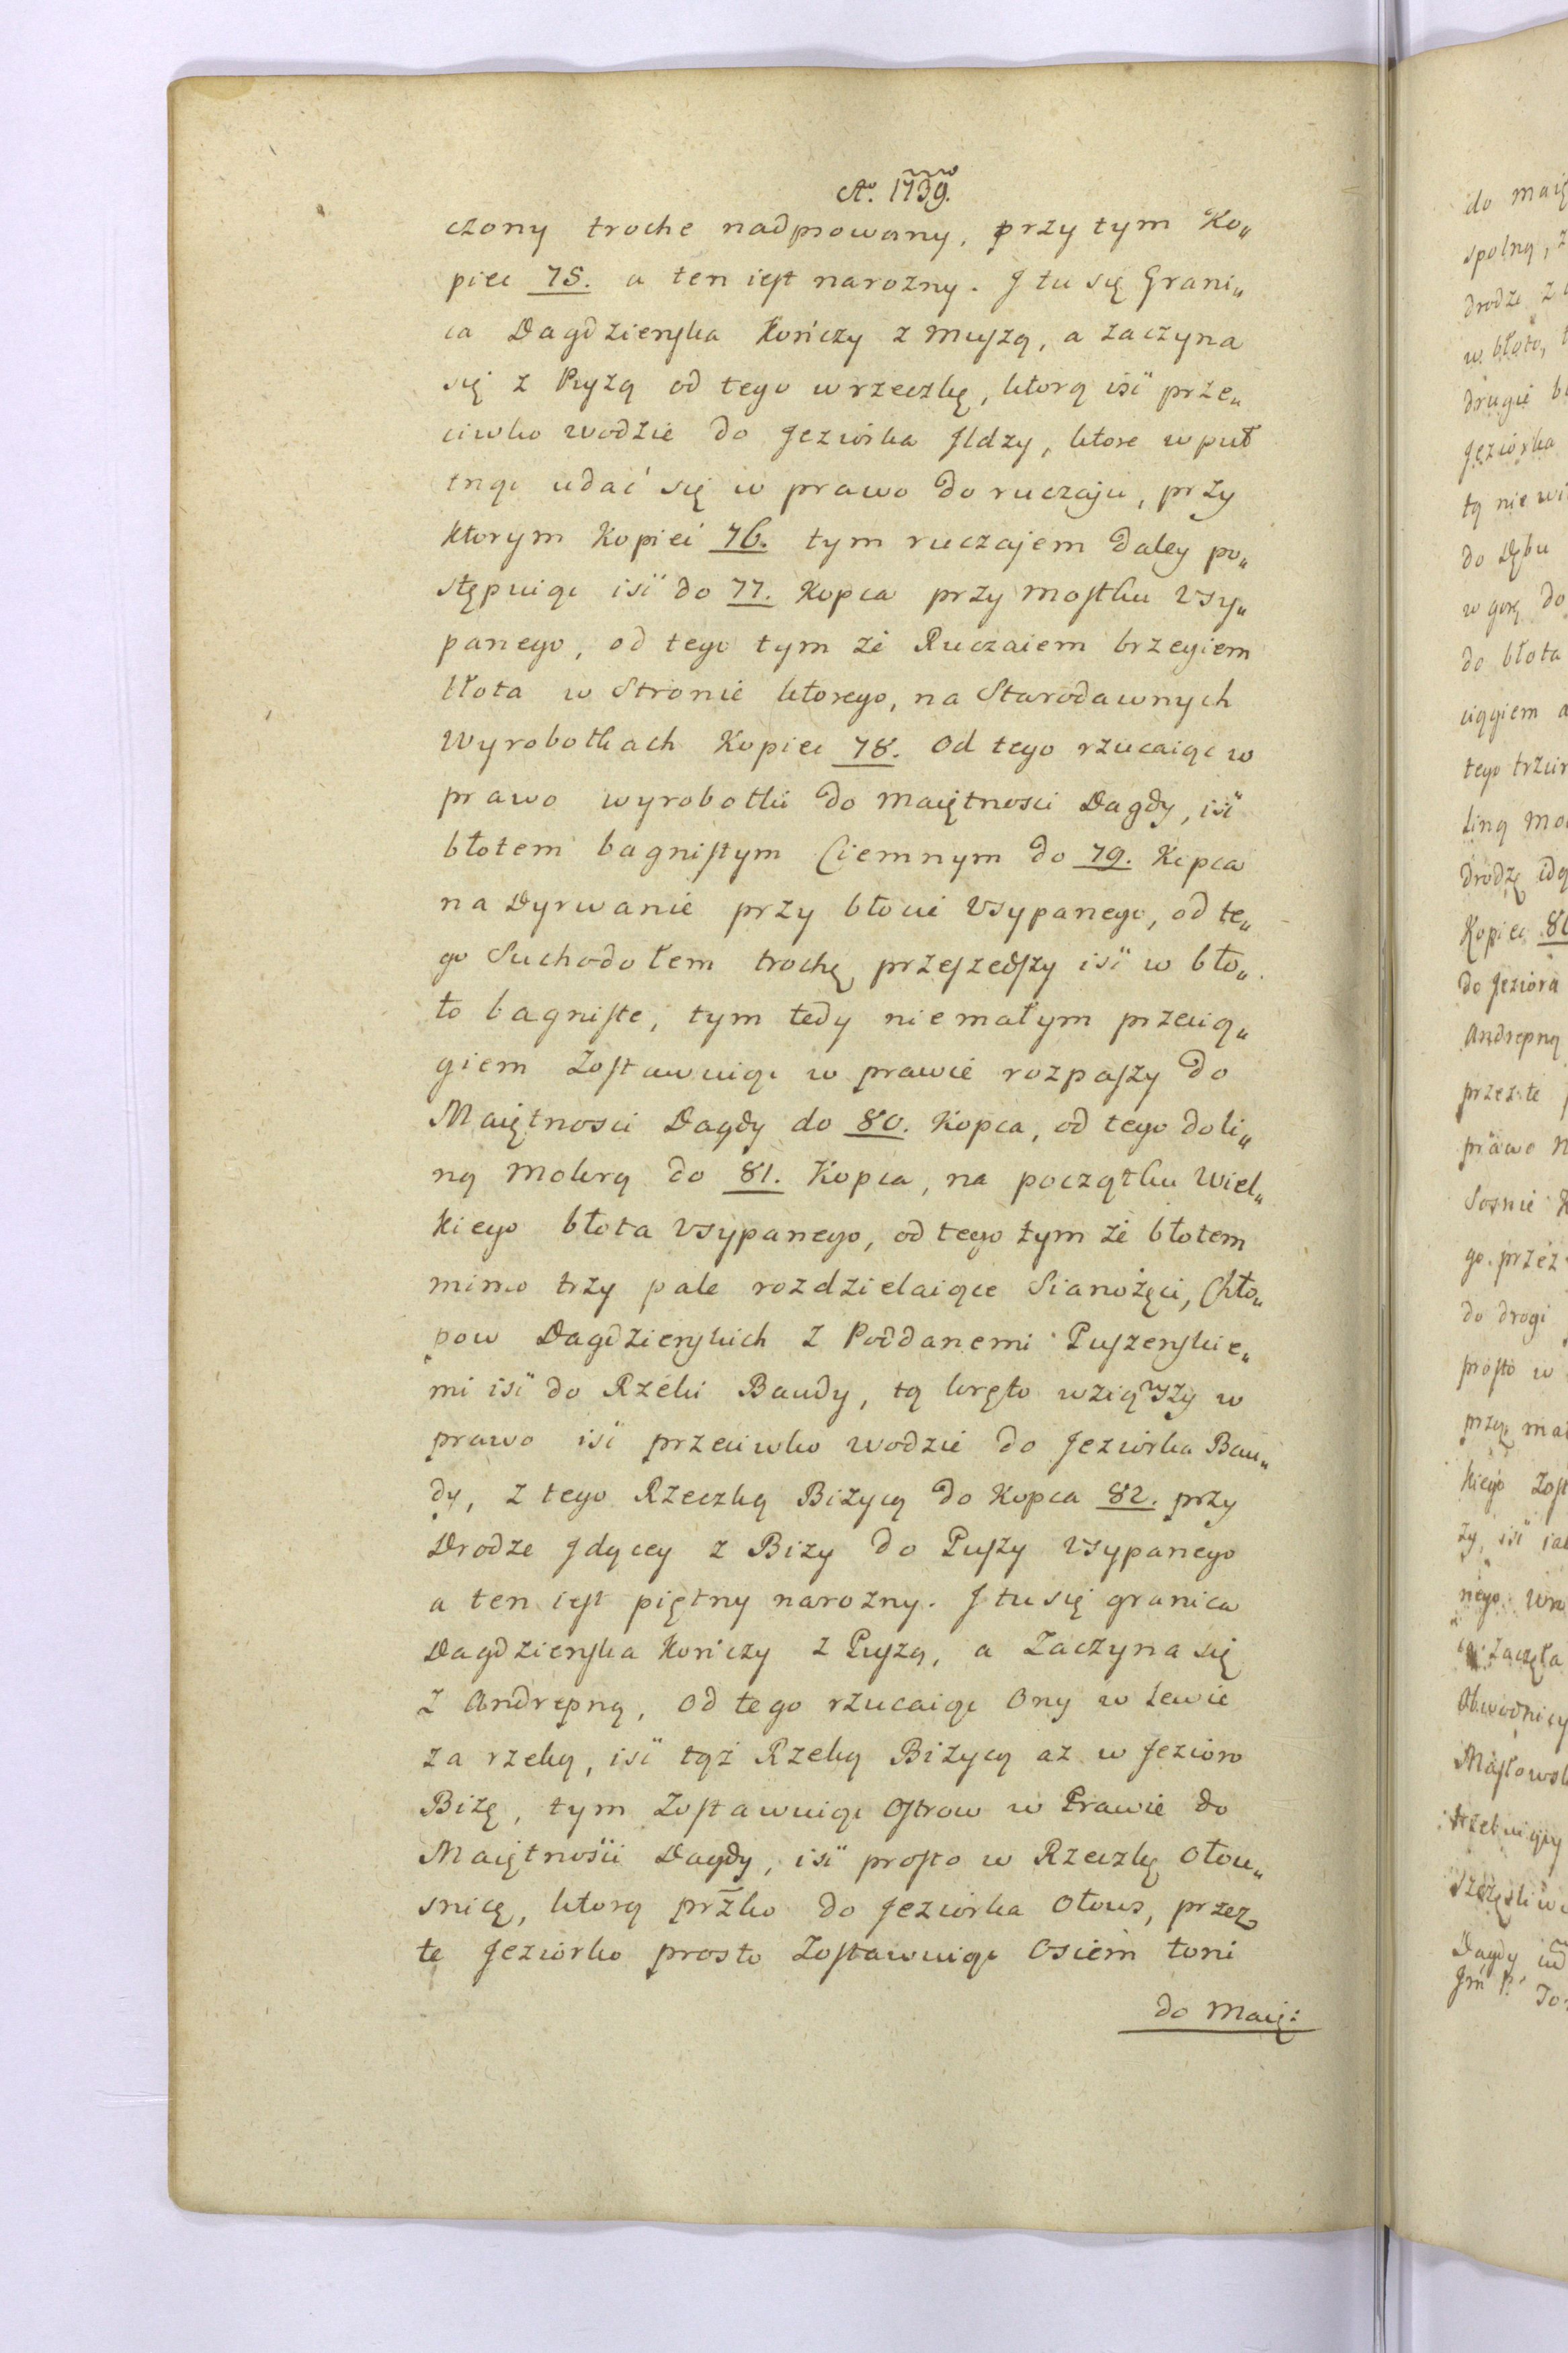 Ao. 1739.
czony troche nadpsowany, przy tym Ko„
piec 75. a ten iest narozny. J tu się Grani„
ca Dagdzienska Kończy z Muszą, a zaczyna
się z Puszą od tego w rzeczkę, ktorą isć prze„
ciwko wodzie do Jeziorka Jldzy, ktore w puł
tnąc udać się w prawo do ruczaju, przy
Ktorym Kopieć 76. tym ruczajem daley po„
stępuiąc isć do 77. Kopca przy mostku Vsy„
panego, od tego tym że Ruczaiem brzegiem
błota w Stronie ktorego, na Starodawnych
Wyrobotkach Kopiec 78. Od tego rzucaiąc w
prawo wyrobotki do Maiętnosci Dagdy, isć
błotem bagnistym Ciemnym do 79. Kopca
na Dyrwanie przy błocie Vsypanego, od te„
go Suchodołem trochę przeszedszy isć w bło„
to bagniste, tym tedy niemałym przecią„
giem Zostawuiąc w prawie rozpaszy do
Maiętnosci Dagdy do 80. Kopca, od tego doli„
ną Mokrą do 81. Kopca, na początku Wiel„
Kiego błota Vsypanego, od tego tym że błotem
mimo trzy pale rozdzielaiące Sianożęci, Chło„
pow Dagdzienskich z Poddanemi Puszenskie„
mi isć do Rzeki Baudy, tą kręto wziąwszy w
prawo isć przeciwko wodzie do Jeziorka Bau„
dy, z tego Rzeczką Biżycą do Kopca 82. przy
Drodze Jdącey z Bizy do Puszy Vsypanego
a ten iest piętny narozny. J tu się granica
Dagdzienska Kończy z Puszą, a Zaczyna się
z Andrepną, od tego rzucaiąc Ony w Lewie
za rzeką, isć tąż Rzeką Biżycą az w Jezioro
Bizę, tym Zostawuiąc Ostrow w Prawie do
Maiętnosći Dagdy, isć prosto w Rzeczkę Ołow„
snicę, ktorą przko do Jeziorka Ołows, przez
te Jeziorko prosto Zostawuiąc Osiem toni
do Maię: